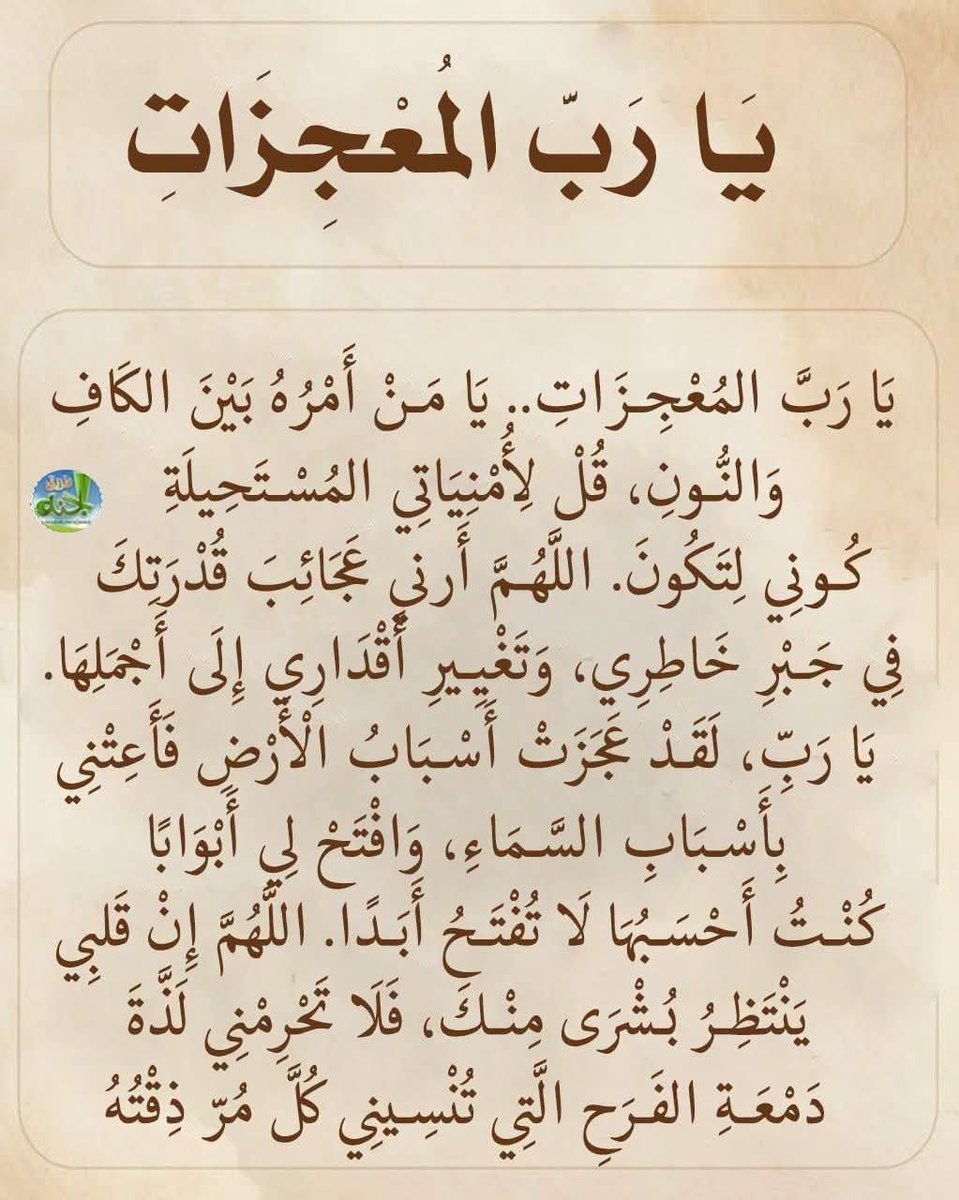 يَا رَبّ المُعْجِزَاتِ
يَا رَبَّ المُعْجِزَاتِ.. يَا مَنْ أَمْرُهُ بَيْنَ الكَافِ
وَالنُّونِ، قُلْ لِأُمْنِيَاتِي المُسْتَحِيلَةِ
كُونِي لِتَكُونَ. اللَّهُمَّ أَرني عَجَائِبَ قُدْرَتِكَ
فِي جَبْرِ خَاطِرِي، وَتَغْيِيرِ أَقْدَارِي إِلَى أَجْمَلِهَا.
يَا رَبِّ، لَقَدْ عَجَزَتْ أَسْبَابُ الْأَرْضِ فَأَعِتْنِي
بِأَسْبَابِ السَّمَاءِ، وَافْتَحْ لِي أَبْوَابًا
كُنْتُ أَحْسَبُهَا لَا تُفْتَحُ أَبَدًا. اللَّهُمَّ إِنْ قَلبِي
يَنْتَظِرُ بُشْرَى مِنْكَ، فَلَا تَحْرِمْنِي لَذَّةَ
دَمْعَةِ الفَرَحِ الَّتِي تُنْسِينِي كُلَّ مُرّ ذِقْتُهُ